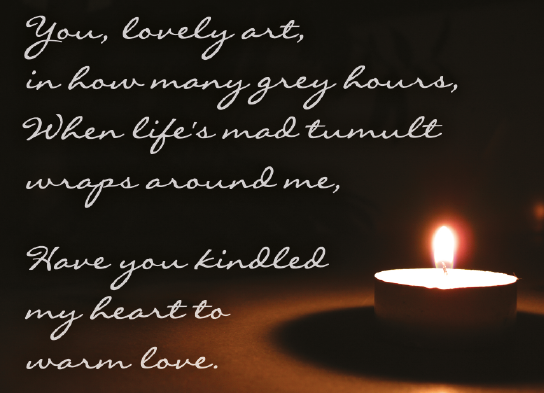 You, lovely art,
in how many grey hours,
When life's mad tumult
wraps around me,
Have you kindled
my heart to
warm love.